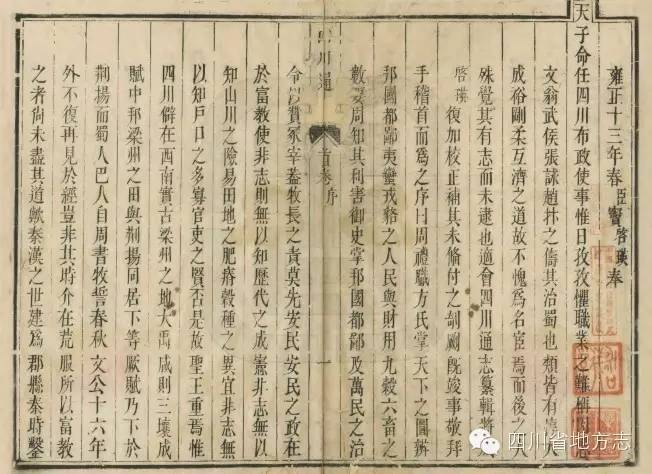 雍正十三年春臣竇啓瑛奉
天子命任四川布政使事惟日孜孜懼職業之難稱
文翁武侯張詠趙抃之儔其治蜀也類皆有
成俗剛柔互濟之道故不愧爲名臣焉而後之
殊覺其有志而未逮也適會四川通志纂輯將
啓瑛復加校正補其未備付之剞劂旣竣事敬拜
手稽首而爲之序曰周禮職方氏掌天下之圖辨
邦國都鄙夷蠻戎貉之人民與財用九穀六畜之
數要周知其利害御史掌邦國都鄙及萬民之治
川通
首卷 序
一
令以贊冢宰蓋牧長之責莫先安民安民之政在
於富教使非志則無以知歷代之成憲非志無以
知山川之險易田地之肥瘠穀種之異宜非志無
以知戶口之多寡官吏之賢否是故聖王重焉惟
四川僻在西南實古梁州之地大禹咸則三壤成
賦中邦梁州之田與荆揚同居下等厥賦乃下於
荆揚而蜀人巴人自周書牧誓春秋文公十六年
外不復再見於經豈非其時介在荒服所以富教
之者尚未盡其道歟秦漢之世建爲郡縣秦時鑿
四川省地方志